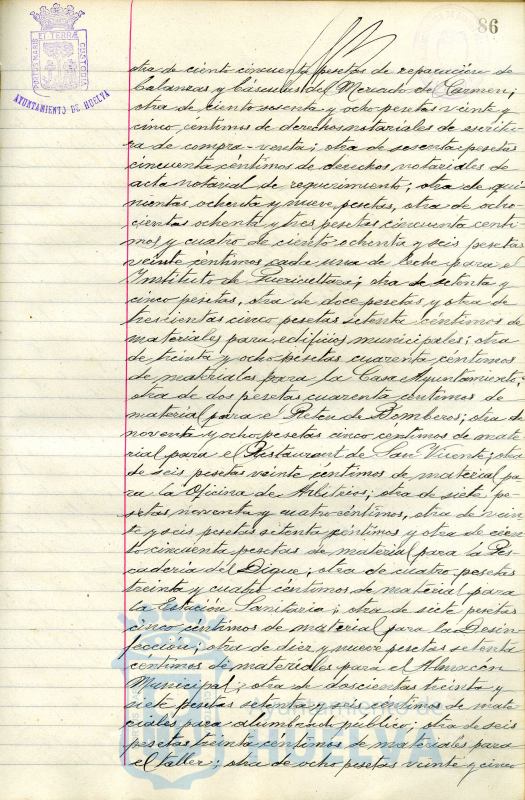 86
PORTUS MARIS ET TERRÆ CUSTODIA
AYUNTAMIENTO DE HUELVA
otra de ciento cincuenta pesetas de reparación de
balanzas y básculas del Mercado del Carmen;
otra de ciento sesenta y ocho pesetas veinte y
cinco céntimos de derechos notariales de escritu-
ra de compra-venta; otra de sesenta pesetas
cincuenta céntimos de derechos notariales de
acta notarial de requerimiento; otra de qui-
nientas ochenta y nueve pesetas, otra de ocho-
cientas ochenta y tres pesetas cincuenta cénti-
mos y cuatro de ciento ochenta y seis pesetas
veinte céntimos cada una de leche para el
Instituto de Puericultura; otra de setenta y
cinco pesetas, otra de doce pesetas y otra de
trescientas cinco pesetas setenta céntimos de
materiales para edificios municipales; otra
de treinta y ocho pesetas cuarenta céntimos
de materiales para la Casa Ayuntamiento;
otra de dos pesetas cuarenta céntimos de
material para el Reten de Bomberos; otra de
noventa y ocho pesetas cinco céntimos de mate-
rial para el Restaurant de San Vicente; otra
de seis pesetas veinte céntimos de material pa-
ra la Oficina de Arbitrios; otra de siete pe-
setas noventa y cuatro céntimos, otra de vein-
te y seis pesetas setenta céntimos y otra de cien-
to cincuenta pesetas de material para la Pes-
cadería del Dique; otra de cuatro pesetas
treinta y cuatro céntimos de material para
la Estación Sanitaria; otra de siete pesetas
cinco céntimos de material para la Desin-
fección; otra de diez y nueve pesetas setenta
céntimos de materiales para el Almacén
Municipal; otra de doscientas treinta y
siete pesetas setenta y seis céntimos de mate-
riales para alumbrado público; otra de seis
pesetas treinta céntimos de materiales para
el taller; otra de ocho pesetas veinte y cinco
HUELVA